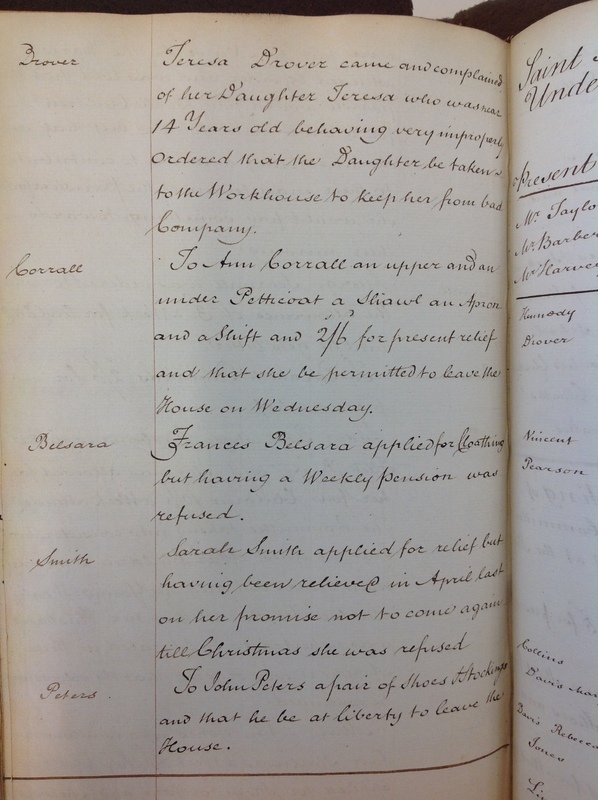 Drover
Teresa Drover came and complained
of her Daughter Teresa who was near
14 Years old behaving very improperly
Ordered that the Daughter be taken
to the Workhouse to keep her from bad
Company.
Corrall
To Ann Corrall an upper and an
under Petticoat a Shawl an Apron
and a Shift and 2/6 for present relief
and that she be permitted to leave the
House on Wednesday.
Belsara
Frances Belsara applied for Cloathing
but having a Weekly Pension was
refused.
Smith
Sarah Smith applied for relief but
having been relieved in April last
on her promise not to come again
till Christmas she was refused
Peters.
To John Peters a pair of Shoes & Stockings
and that he be at liberty to leave the
House.
Saint
Unde
Present
Mr. Taylo
Mr. Barber
Mr Harvey
Kennedy
Drover
Vincent
Pearson
Collins
Davis
Davis Rebecca
Jones